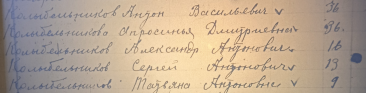 Колыбельников Антон Васильевич v 36
Колыбельникова Апросинья Дмитриевна v 36.
Колыбельников Александр Антонович v 16
Колыбельников Сергей Антонович v 13
Колыбельникова Татьяна Антоновна v 9.